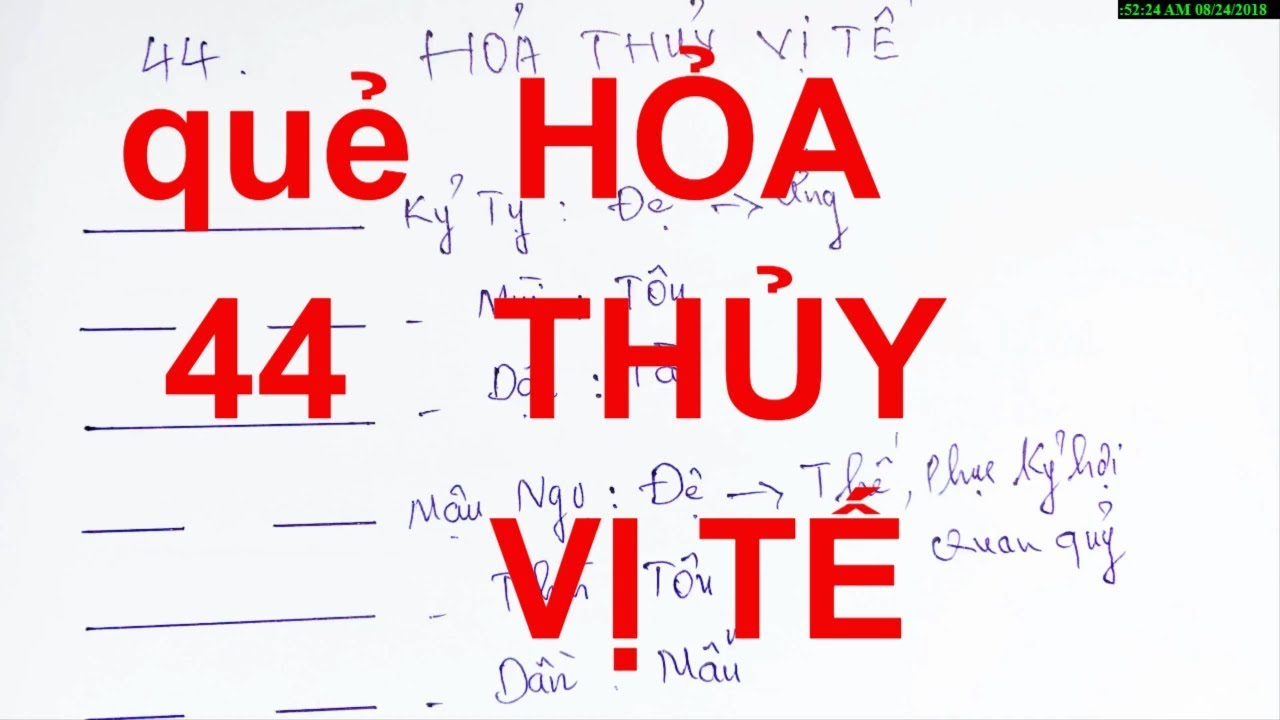 :52:24 AM 08/24/2018
44. HỎA THỦY VỊ TẾ
quẻ HỎA
Kỷ Tỵ : Đệ → Ứng
: Tôn
44 THỦY
Dậu : Tài
Mậu Ngọ : Đệ → Thế, Phục Kỷ hợi
quan quỷ
VỊ TẾ
Tôn
Dần : Mẫu